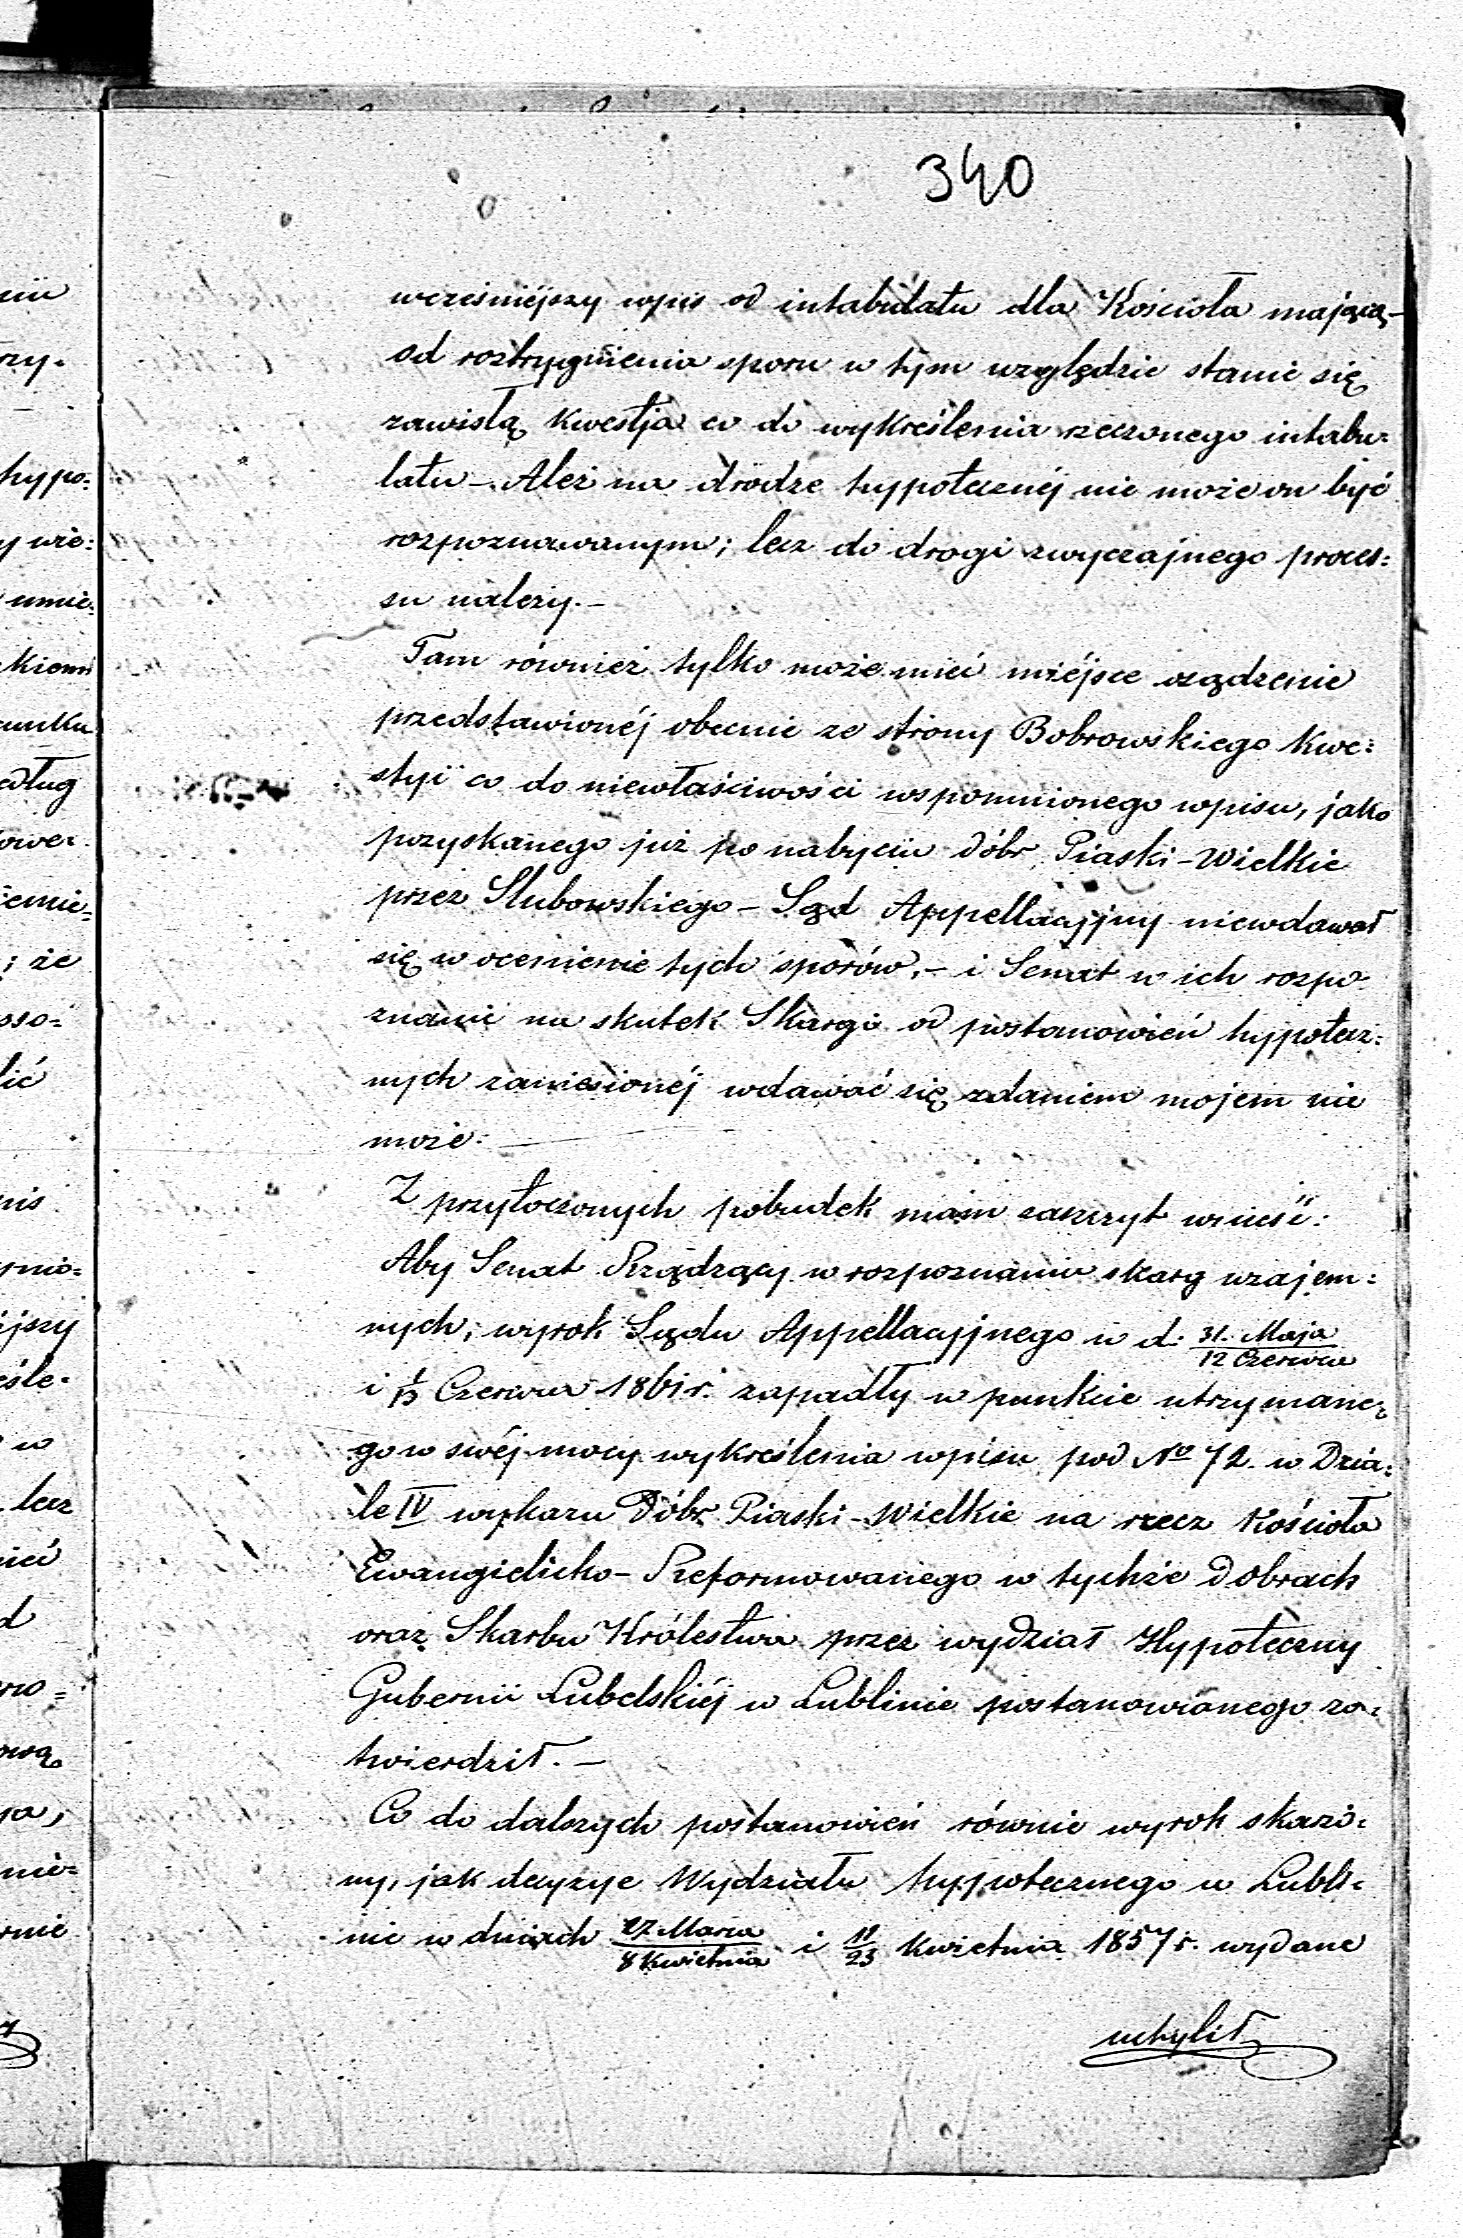 340
wcześniéjszy wpis od intabulatu dla Kościoła mającą –
od roztrzygnienia sporu w tym względzie stanie się
zawisłą kwestja co do wykreślenia rzeczonego intabu=
latu – Aleź na drodze hypotecznéj nie może on być
rozpoznawanym; lecz do drogi zwyczajnego proces=
su należy. –
Tam również tylko może mieć miéjsce osądzenie
przedstawionéj obecnie ze strony Bobrowskiego kwe=
styi co do niewłaściwości wspomnionego wpisu, jako
pozyskanego już po nabyciu dóbr Piaski-Wielkie
przez Slubowskiego – Sąd Appellacyjny niewdawał
się w ocenienie tych sporów, – i Senat w ich rozpo
znanie na skutek Skargi od postanowień hypotecz=
nych zaniesionéj wdawać się zdaniem mojem nie
może. –
Z przytoczonych pobudek mam zaszczyt wnieść:
Aby Senat Rządzący w rozpoznaniu skarg wzajem=
nych, wyrok Sądu Appellacyjnego w d. 31. Maja / 12 Czerwca
i 1/13 Czerwca 1861 r. zapadły w punkcie utrzymane=
go w swéj mocy wykreślenia wpisu pod No 72. w Dzia=
le IV wykazu Dóbr Piaski-Wielkie na rzecz Kościoła
Ewangielicko-Reformowanego w tychże Dobrach
oraz Skarbu Królestwa przez wydział Hypoteczny
Gubernii Lubelskiéj w Lublinie postanowionego za=
twierdził. –
Co do dalszych postanowień równie wyrok skarżo=
ny, jak decyzye Wydziału hypotecznego w Lubli=
nie w dniach 27 Marca / 8 Kwietnia i 11/23 Kwietnia 1857 r. wydane
uchylił